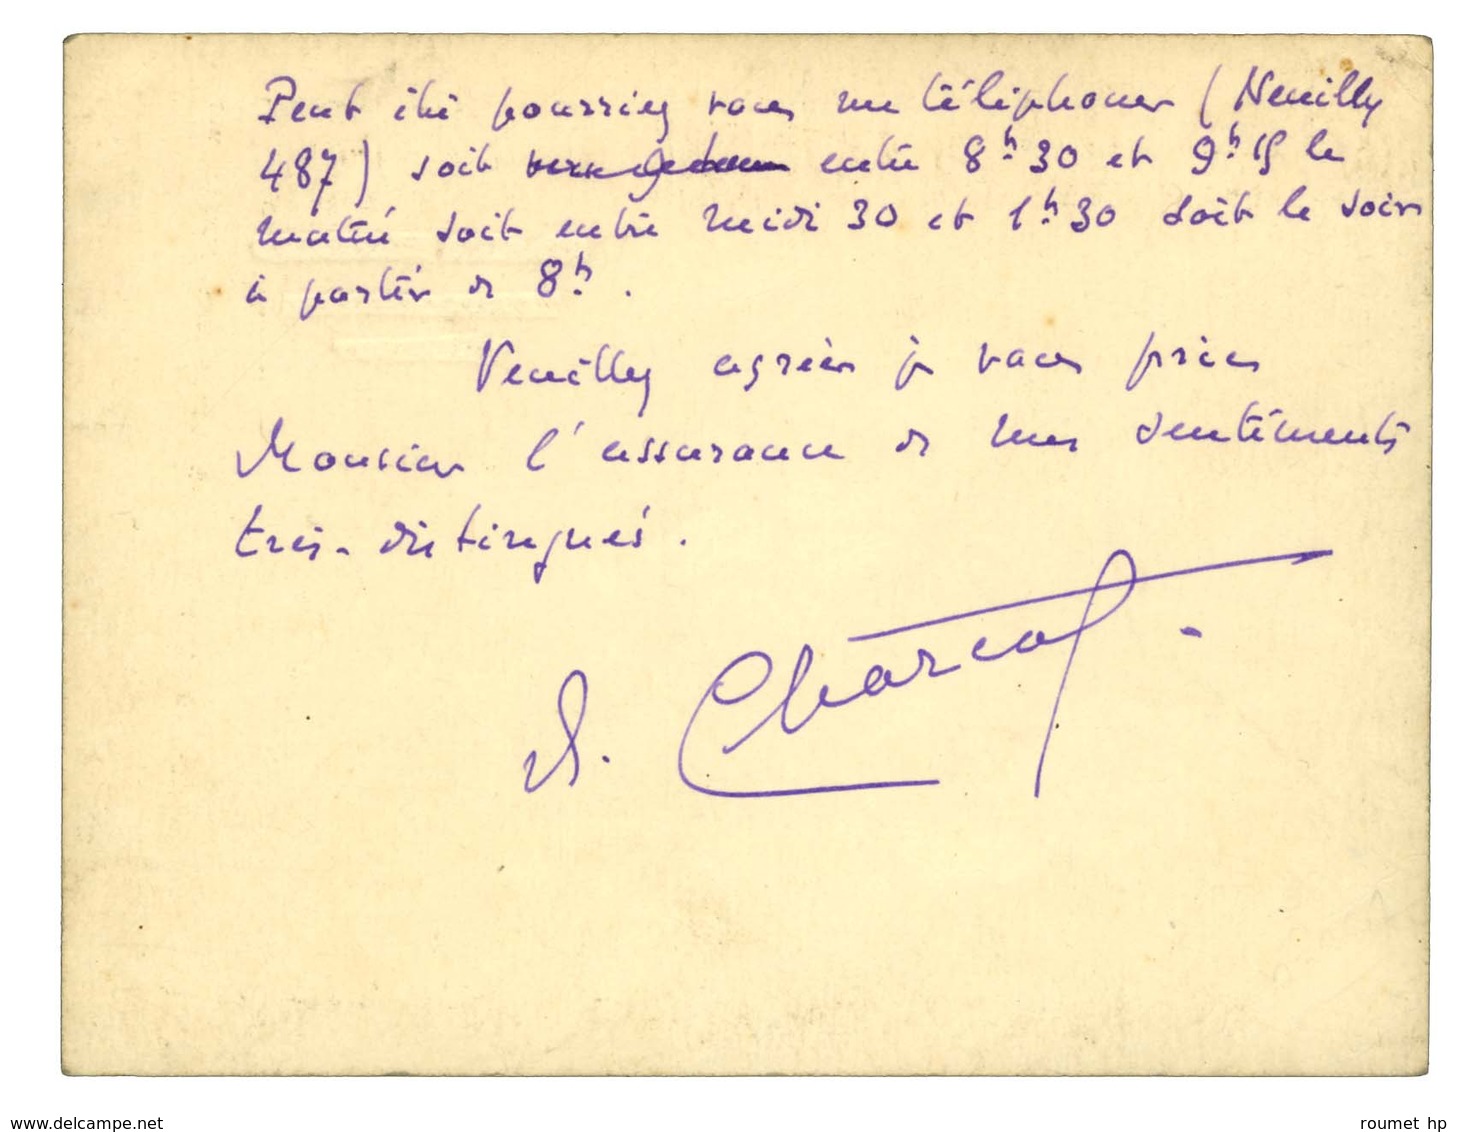 Peut être pourriez vous me téléphoner (Neuilly
487) soit entre 8h 30 et 9h 15 le
matin soit entre midi 30 et 1h 30 soit le soir
à partir de 8h.
Veuillez agréer je vous prie
Monsieur l'assurance de mes sentiments
très-distingués.
Charcot
www.delcampe.net
roumet hp